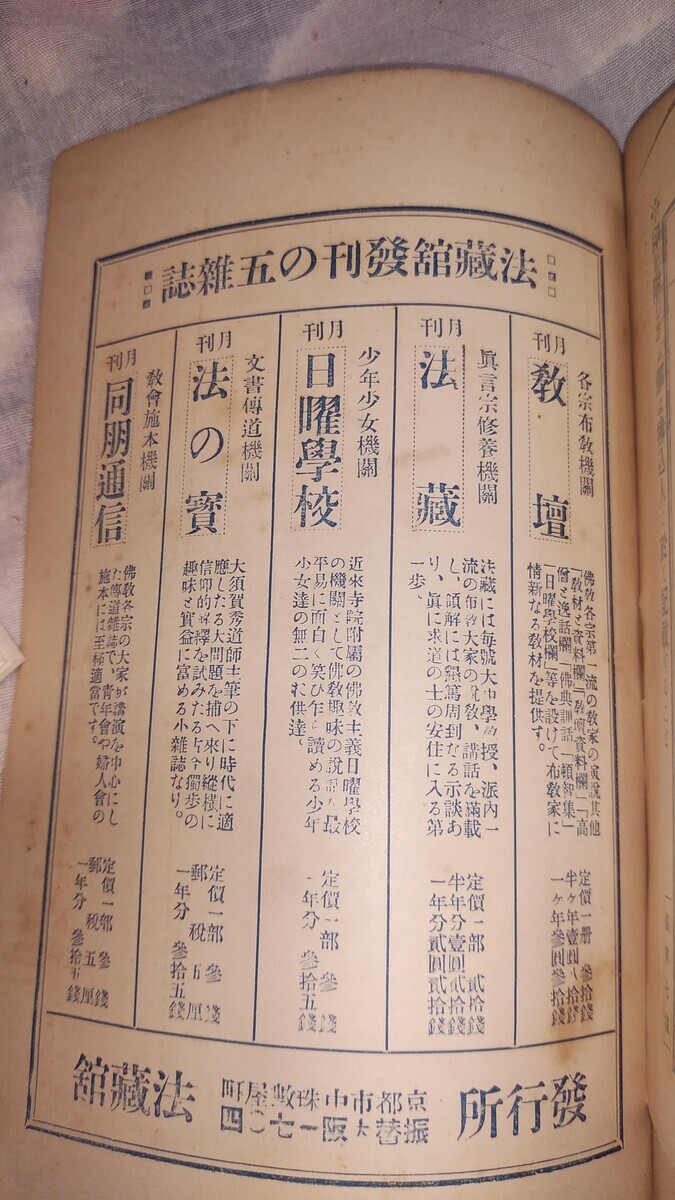 法藏舘發刊の五雜誌
月刊
敎壇
各宗布敎機關
佛敎各宗第一流の敎家の演說其他
「敎材と資料欄」「敎壇資料欄」「高
僧と逸話欄」「佛典訓話」「頓智集」
「日曜學校欄」等を設けて布敎家に
情新なる敎材を提供す。
定價一册 參拾錢
半ヶ年壹圓 拾錢
一ヶ年參圓參拾錢
月刊
法藏
眞言宗修養機關
法藏には每號大 學 授、派內一
流の布敎大家の 敎、講話を滿載
し、領解には懇篤周到なる示談あ
り、眞に求道の士の安住に入る第
一步、
定價一部 貳拾錢
半年分壹圓貳拾錢
一年分貳圓貳拾錢
月刊
日曜學校
少年少女機關
近來寺院附屬の佛敎主義日曜學校
の機關として佛敎趣味の說 を最
平易に面白く笑ひ乍ら讀める少年
少女達の無二のお伴達、
定價一部 參錢
一年分 參拾五錢
月刊
法の寶
文書傳道機關
大須賀秀道師主筆の下に時代に適
應したる大問題を捕へ來り縱橫に
信仰的解釋を試みたる古今獨步の
趣味と實益に富める小雜誌なり。
定價一部 參錢
郵稅 五厘
一年分 參拾五錢
月刊
同朋通信
敎會施本機關
佛敎各宗の大家が講演を中心にし
た傳道雜誌で、靑年會や婦人會の
施本には至極適當です。
定價一部 參錢
郵稅 五厘
一年分 參拾五錢
發行所
京都市中珠數屋町
振替大阪一七〇四
法藏舘